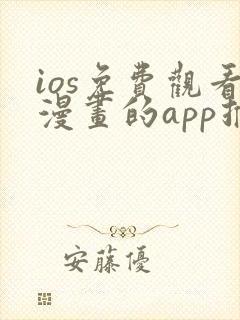 ios免費觀看
漫畫的app推
安藤優